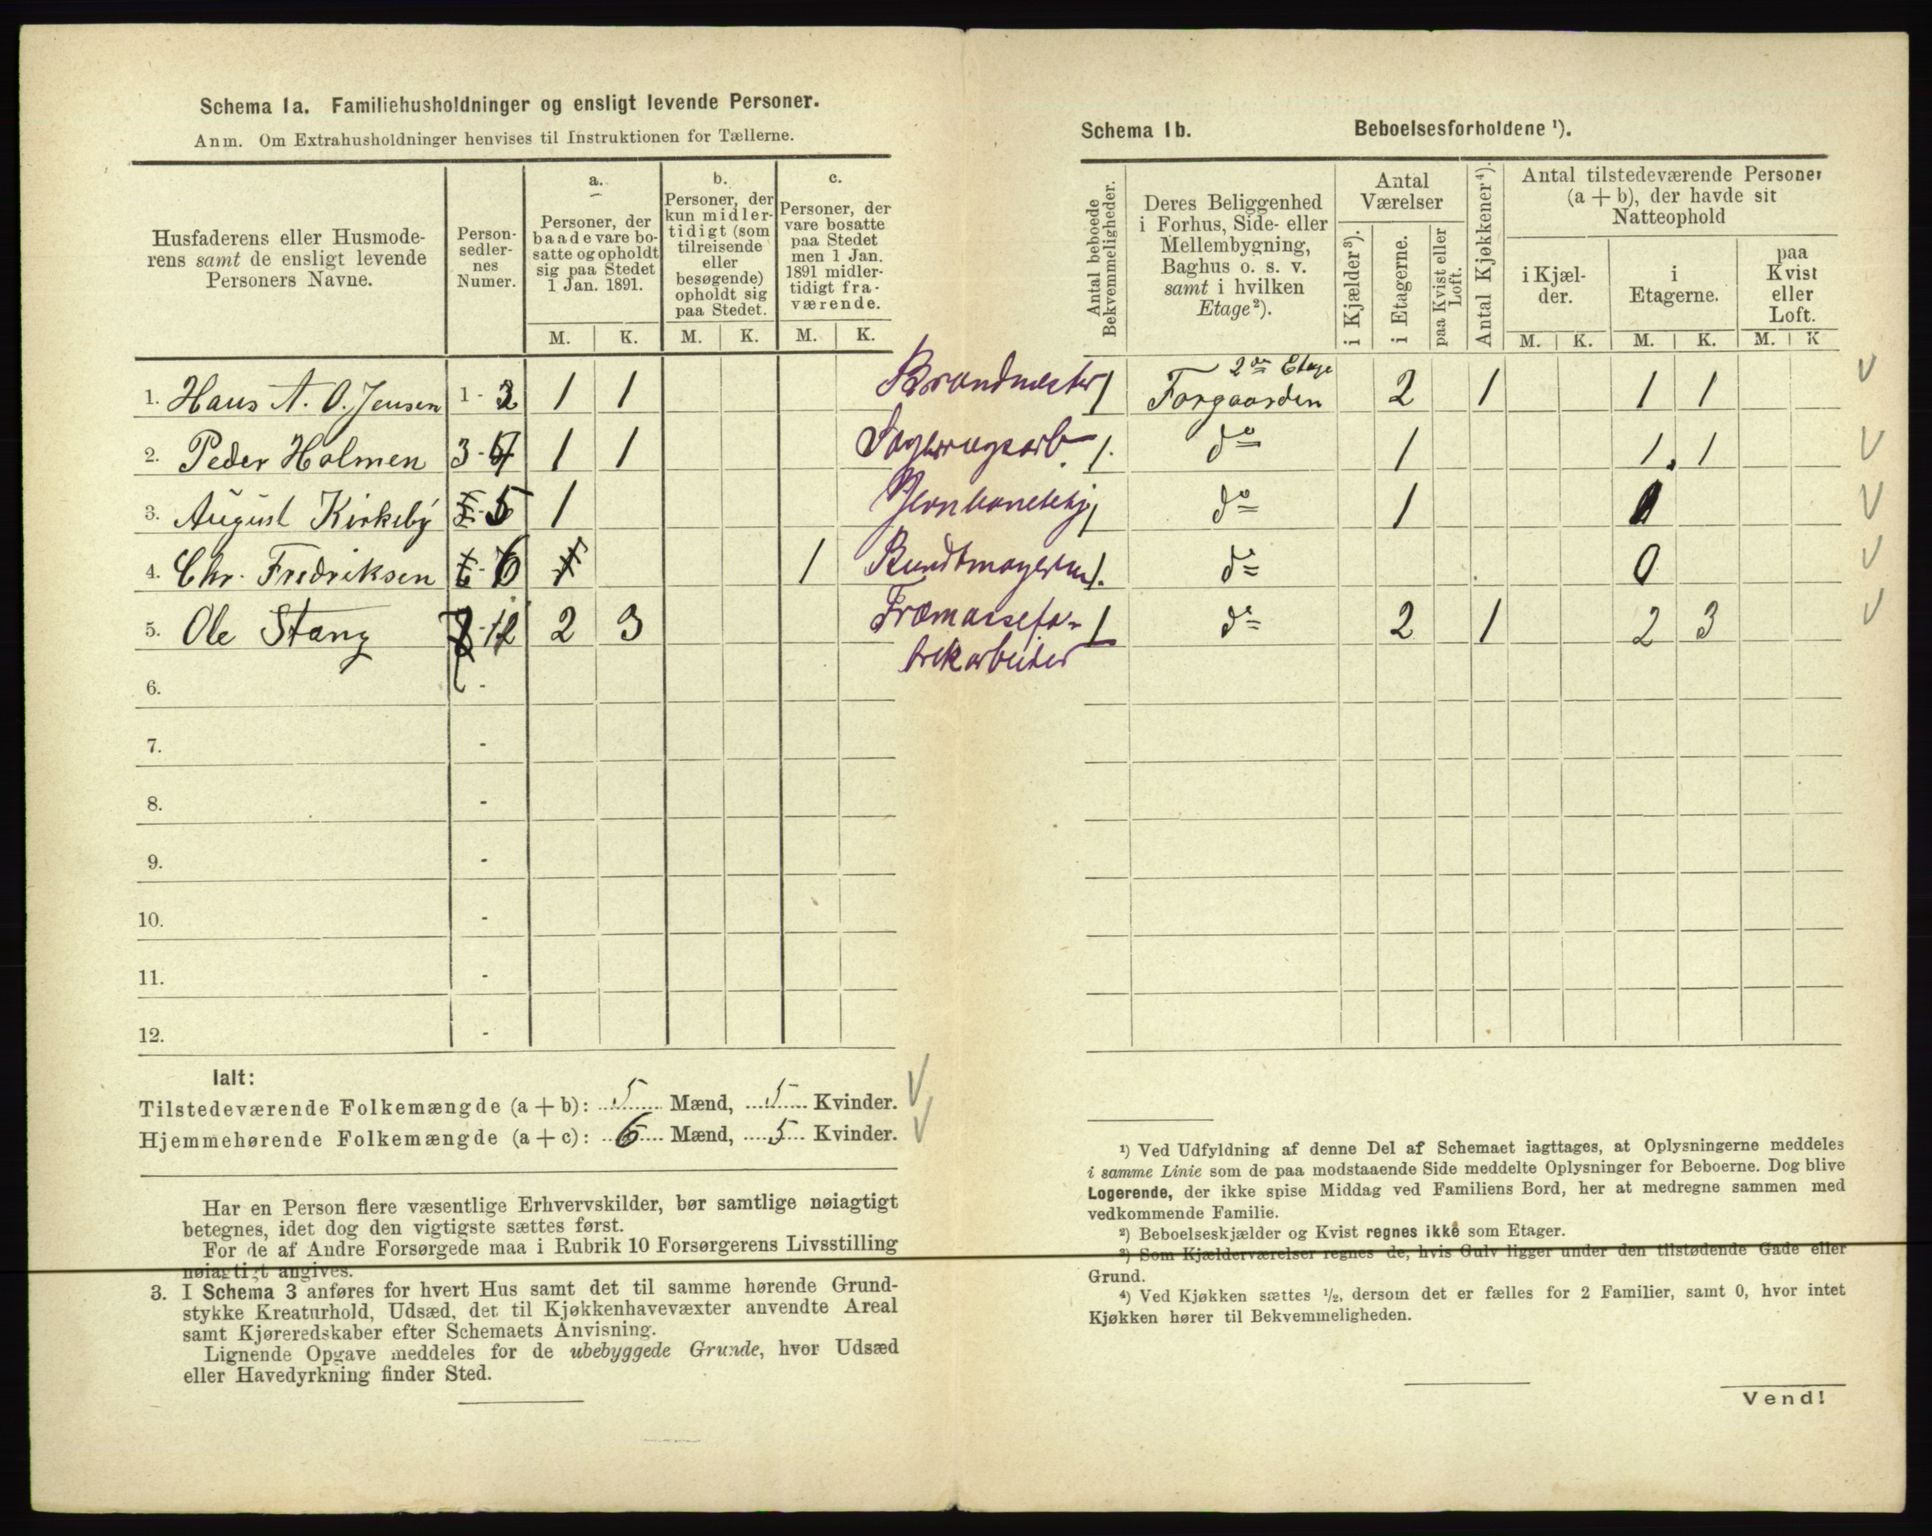 Schema 1a. Familiehusholdninger og ensligt levende Personer.
Anm. Om Extrahusholdninger henvises til Instruktionen for Tællerne.
Husfaderens eller Husmode-
rens samt de ensligt levende
Personers Navne.
Person-
sedler-
nes
Numer.
a.
Personer, der
baade vare bo-
satte og opholdt
sig paa Stedet
1 Jan. 1891.
b.
Personer, der
kun midler-
tidigt (som
tilreisende
eller
besøgende)
opholdt sig
paa Stedet.
c.
Personer, der
vare bosatte
paa Stedet
men 1 Jan.
1891 midler-
tidigt fra-
værende.
M. K. M. K. M. K.
1. Hans A. O. Jensen 1 - 2 1 1 Brandmester
2. Peder Holmen 3 - 4 1 1
3. August Kirkeby 5 1
4. Chr. Fredriksen 6 1 1
5. Ole Stang 7 - 11 2 3 Træmassefa-
brikarbeider
6. -
7. -
8. -
9. -
10. -
11. -
12. -
Ialt:
Tilstedeværende Folkemængde (a + b): 5 Mænd, 5 Kvinder.
Hjemmehørende Folkemængde (a + c): 6 Mænd, 5 Kvinder.
Har en Person flere væsentlige Erhvervskilder, bør samtlige nøiagtigt
betegnes, idet dog den vigtigste sættes først.
For de af Andre Forsørgede maa i Rubrik 10 Forsørgerens Livsstilling
nøiagtigt angives.
3. I Schema 3 anføres for hvert Hus samt det til samme hørende Grund-
stykke Kreaturhold, Udsæd, det til Kjøkkenhavevæxter anvendte Areal
samt Kjøreredskaber efter Schemaets Anvisning.
Lignende Opgave meddeles for de ubebyggede Grunde, hvor Udsæd
eller Havedyrkning finder Sted.
Schema 1b. Beboelsesforholdene ¹).
Antal beboede
Bekvemmeligheder.
Deres Beliggenhed
i Forhus, Side- eller
Mellembygning,
Baghus o. s. v.
samt i hvilken
Etage ²).
Antal
Værelser
i Kjælder ³).
i Etagerne.
paa Kvist eller
Loft.
Antal Kjøkkener ⁴).
Antal tilstedeværende Personer
(a + b), der havde sit
Natteophold
i Kjæl-
der.
i
Etagerne.
paa
Kvist
eller
Loft.
M. K. M. K. M. K
2den Etage
1 Forgaarden 2 1 1 1
1 do 1 1 1
1 do 1 1
1 do 0
1 do 2 1 2 3
¹) Ved Udfyldning af denne Del af Schemaet iagttages, at Oplysningerne meddeles
i samme Linie som de paa modstaaende Side meddelte Oplysninger for Beboerne. Dog blive
Logerende, der ikke spise Middag ved Familiens Bord, her at medregne sammen med
vedkommende Familie.
²) Beboelseskjælder og Kvist regnes ikke som Etager.
³) Som Kjælderværelser regnes de, hvis Gulv ligger under den tilstødende Gade eller
Grund.
⁴) Ved Kjøkken sættes ½, dersom det er fælles for 2 Familier, samt 0, hvor intet
Kjøkken hører til Bekvemmeligheden.
Vend!